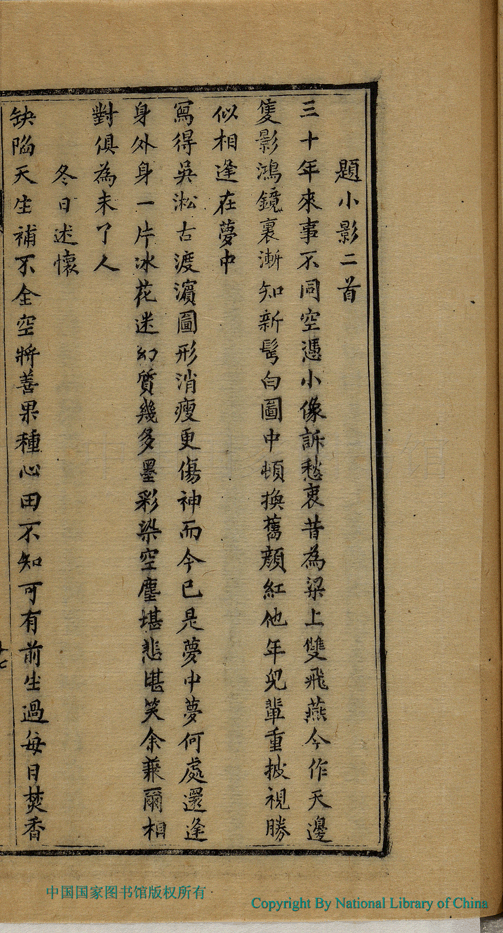 題小影二首
三十年來事不同空憑小像訴愁衷昔為梁上雙飛燕今作天邊
隻影鴻鏡裏漸知新髩白圖中頓換舊顔紅他年兒輩重披視勝
似相逢在夢中
寫得吳淞古渡濱圖形消瘦更傷神而今已是夢中夢何處還逢
身外身一片冰花迷幻質幾多墨彩染空塵堪悲堪笑余兼爾相
對俱為未了人
冬日述懷
缺陷天生補不全空將善果種心田不知可有前生過每日焚香
中国国家图书馆版权所有
Copyright By National Library of China